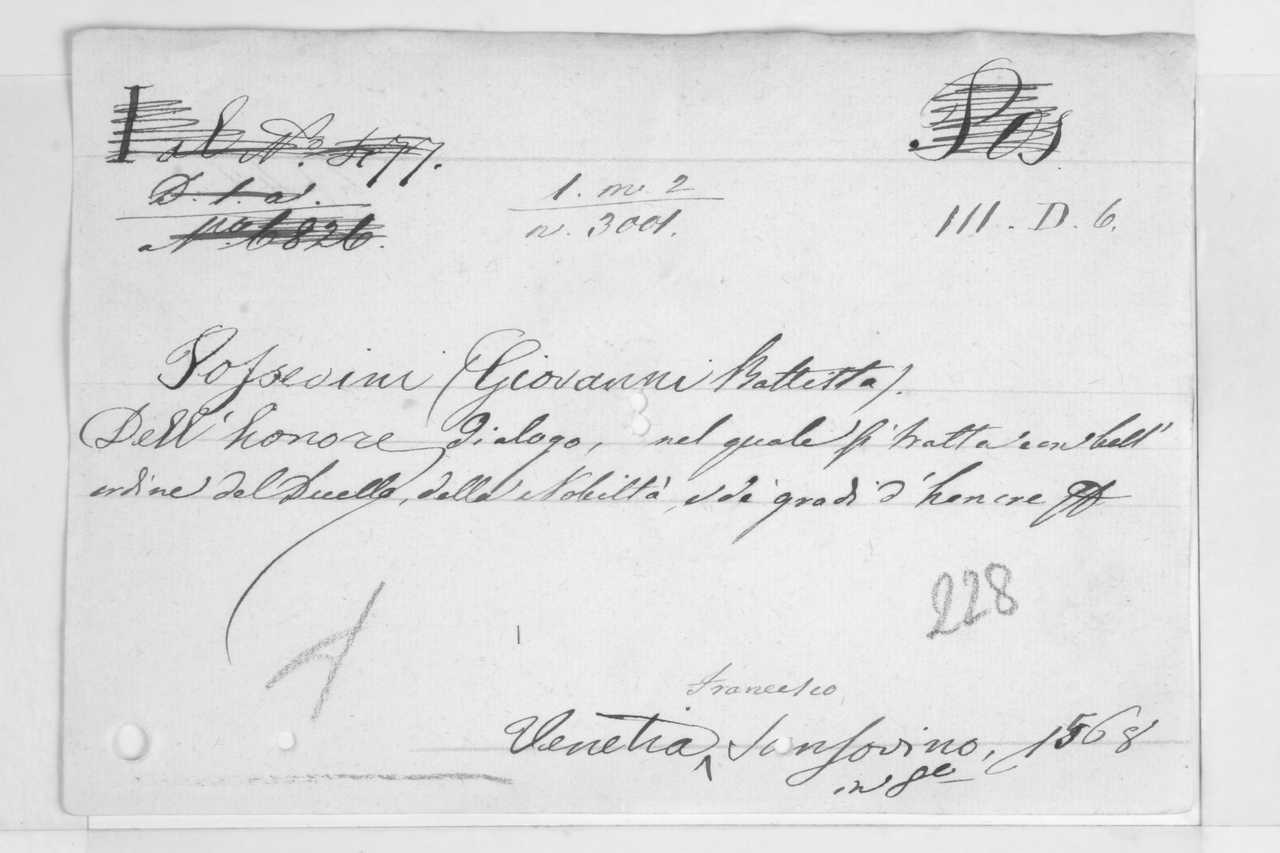 I a E N.o 4177. Pos
D. 1. a. 1. m. 2 III. D. 6.
N.ro 6826. n. 3001.
Possevini (Giovanni Battista).
Dell' honore Dialogo, nel quale si tratta con bell'
ordine del Duello, della Nobiltà, e de gradi d'honore
228
Francesco
Venetia, Sansovino, 1568
in 8e